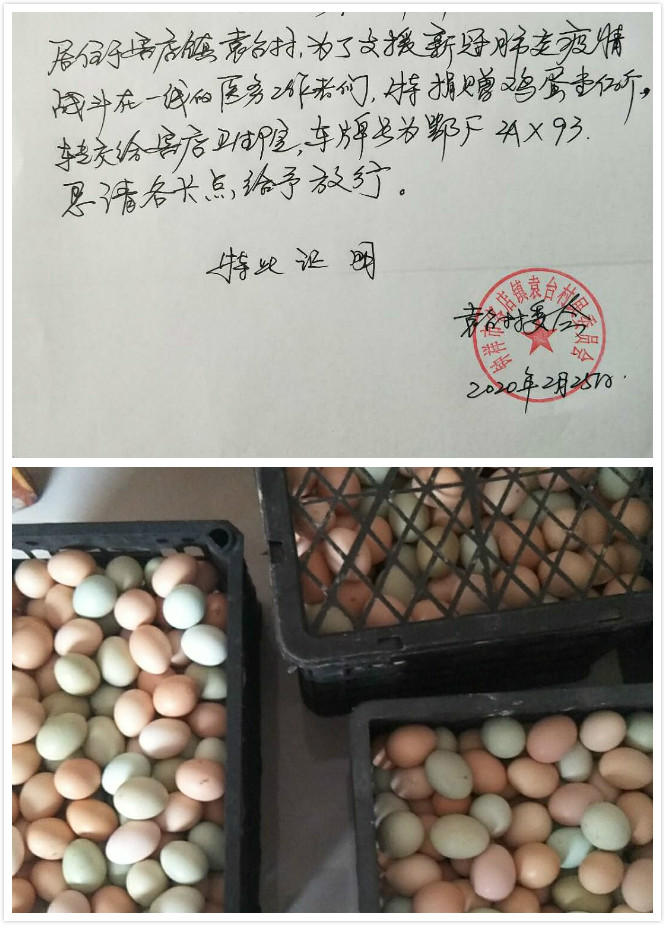 居住于客店镇袁台村,为了支援新冠肺炎疫情
战斗在一线的医务工作者们,特捐赠鸡蛋壹佰斤,
转交给客店卫生室,车牌号为鄂F
恳请各卡点,给予放行。
特此证明
钟祥市客店镇袁台村民委员会
袁台村委会
2020年2月25日.